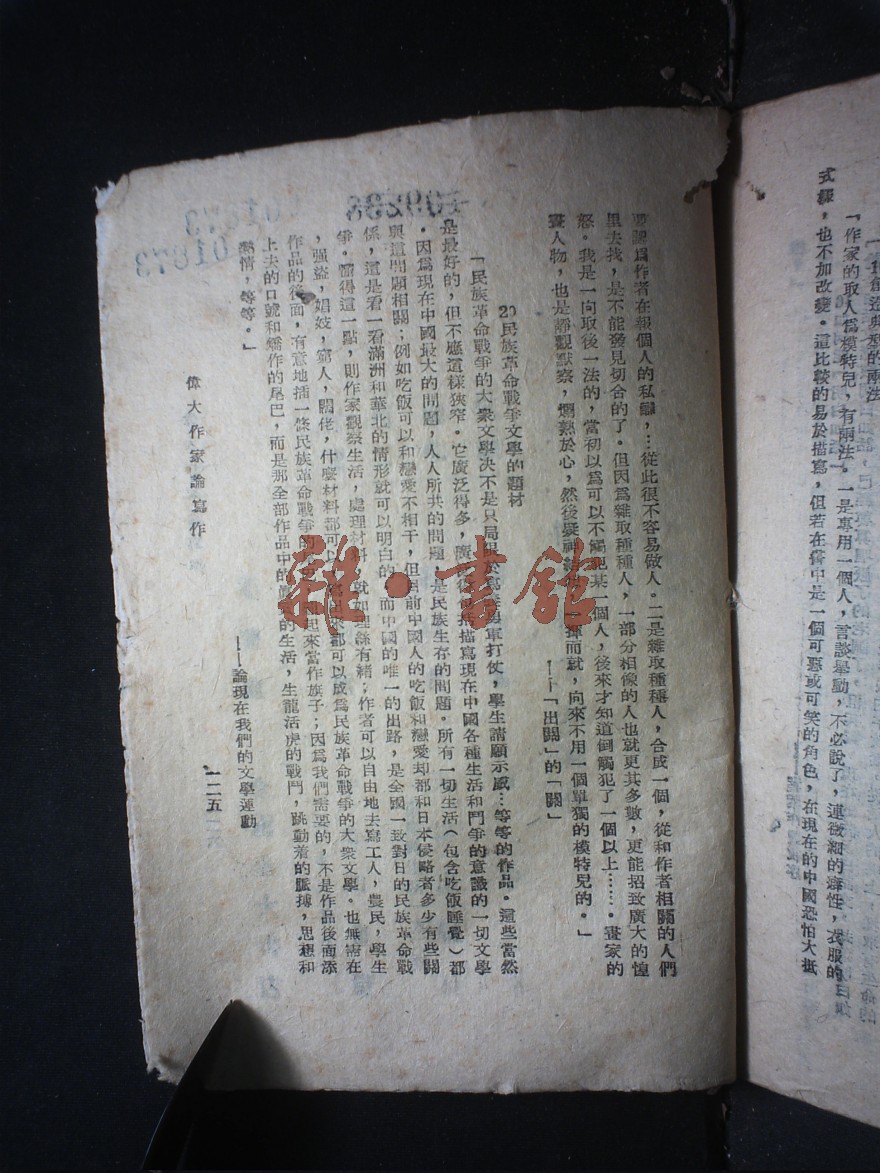 「作家的取人爲模特兒，有兩法。一是專用一個人，言談舉動，不必說了，連微細的癖性，衣服的
式樣，也不加改變。這比較的易於描寫，但若在書中是一個可惡或可笑的角色，在現在的中國恐怕大抵
要認爲作者在報個人的私讎，…從此很不容易做人。二是雜取種種人，合成一個，從和作者相關的人們
里去找，是不能發見切合的了。但因爲雜取種種人，一部分相像的人也就更其多數，更能招致廣大的惶
怒。我是一向取後一法的，當初以爲可以不觸犯某一個人，後來才知道倒觸犯了一個以上……。畫家的
畫人物，也是靜觀默察，爛熟於心，然後凝神 揮而就，向來不用一個單獨的模特兒的。」
——「出關」的「關」
20民族革命戰爭文學的題材
「民族革命戰爭的大衆文學决不是只局限於寫 軍打仗，學生請願示威…等等的作品。這些當然
是最好的，但不應這樣狹窄。它廣泛得多，廣泛 包括描寫現在中國各種生活和鬥爭的意識的一切文學
。因爲現在中國最大的問題，人人所共的問題，是民族生存的問題。所有一切生活（包含吃飯睡覺）都
與這問題相關；例如吃飯可以和戀愛不相干，但目前中國人的吃飯和戀愛却都和日本侵略者多少有些關
係，這是看一看滿洲和華北的情形就可以明白的。而中國的唯一的出路，是全國一致對日的民族革命戰
爭。懂得這一點，則作家觀察生活，處理材料，就如理絲有緒；作者可以自由地去寫工人，農民，學生
，強盜，娼妓，窮人，闊佬，什麼材料都可以， 出來都可以成爲民族革命戰爭的大衆文學。也無需在
作品的後面，有意地插一條民族革命戰爭的 起來當作旗子；因爲我們需要的，不是作品後面添
上去的口號和矯作的尾巴，而是那全部作品中的 的生活，生龍活虎的戰鬥，跳動着的脈搏，思想和
熱情，等等。」
——論現在我們的文學運動
偉大作家論寫作
一二五
雜·書館